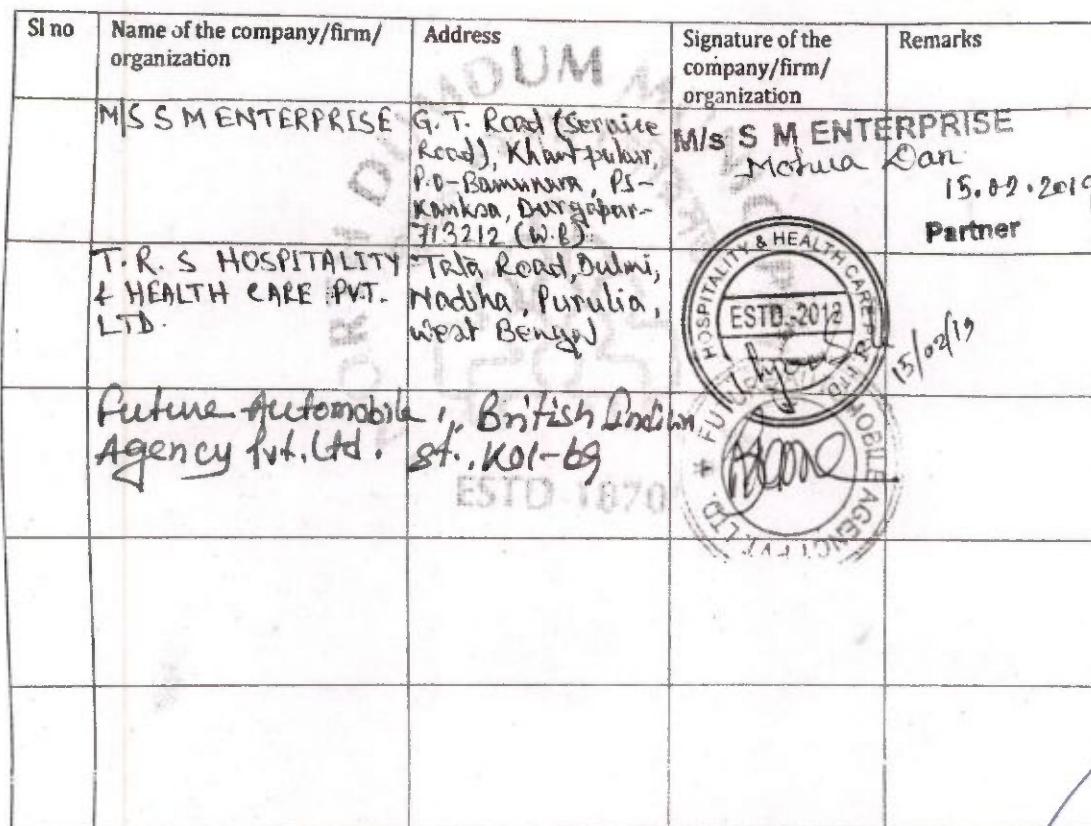 Sl no
Name of the company/firm/
organization
Address
Signature of the
company/firm/
organization
Remarks
M/S S M ENTERPRISE
G. T. Road (Service
Road), Khantpukur,
P.O-Bamunara, PS-
Kanksa, Durgapur-
713212 (W.B)
M/s S M ENTERPRISE
Dan
15.02.2019
Partner
T.R.S HOSPITALITY
& HEALTH CARE PVT.
LTD.
Tata Road, Dulmi,
Nadiha, Purulia,
West Bengal
HOSPITALITY & HEALTH CARE
LTD
ESTD.-2012
15/02/19
Future Automobile
Agency Pvt. Ltd.
British Indian
St., Kol-69
MOBILE AGENCY PVT. LTD.
DUMDUM
ESTD 1870